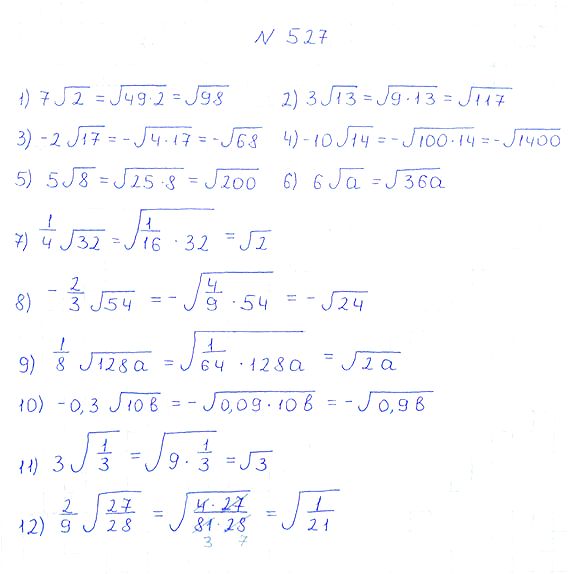 N 527
1) 7√2 = √49·2 = √98 2) 3√13 = √9·13 = √117
3) -2√17 = -√4·17 = -√68 4) -10√14 = -√100·14 = -√1400
5) 5√8 = √25·8 = √200 6) 6√a = √36a
7) 1/4 √32 = √1/16 · 32 = √2
8) -2/3 √54 = -√4/9 · 54 = -√24
9) 1/8 √128a = √1/64 · 128a = √2a
10) -0,3 √10в = -√0,09·10в = -√0,9в
11) 3√1/3 = √9·1/3 = √3
12) 2/9 √27/28 = √4·27/81·28 = √1/21
3 7